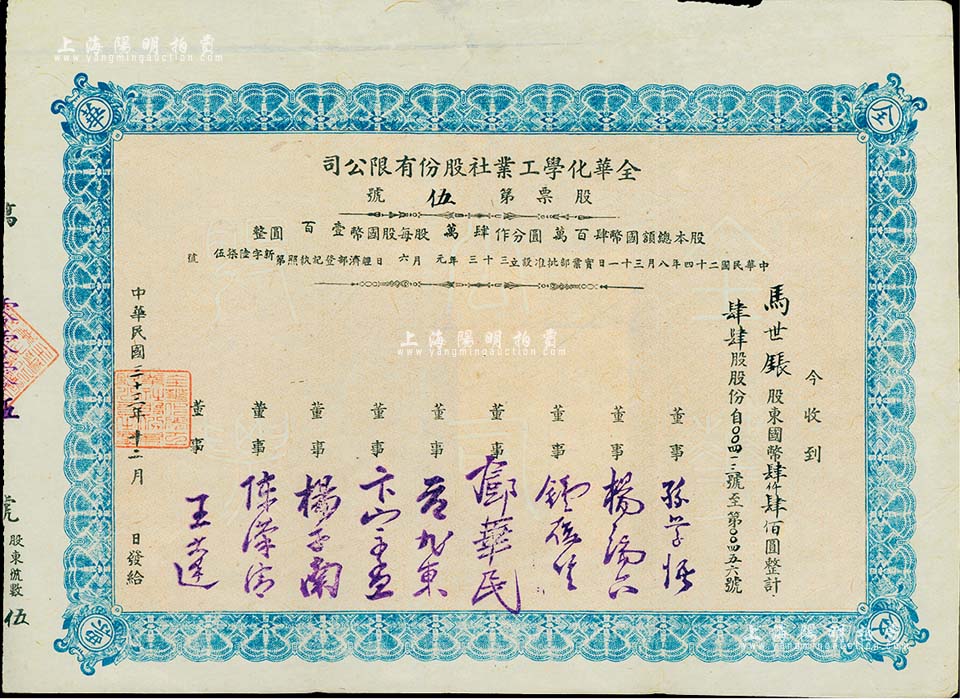 上海陽明拍賣
www.yangmingauction.com
全華化學工業社股份有限公司
股票第伍號
股本總額國幣肆百萬圓分作肆萬股每股國幣壹百圓整
中華民國二十四年八月三十一日實業部批准設立三十三年元月六日經濟部登記執照第新字陸柒伍號
今收到
馬世鋹股東國幣肆仟肆佰圓整計
肆肆股股份自〇〇四一三號至第〇〇四五六號
董事
董事 楊
董事
董事 鄧華民
董事
董事
董事 楊子南
董事 陳漢清
董事 王達
中華民國三十三年十二月 日發給
上海陽明拍賣
www.yangmingauction.com
號
股東號數伍
全
華
上海陽明拍賣
www.yangmingauction.com